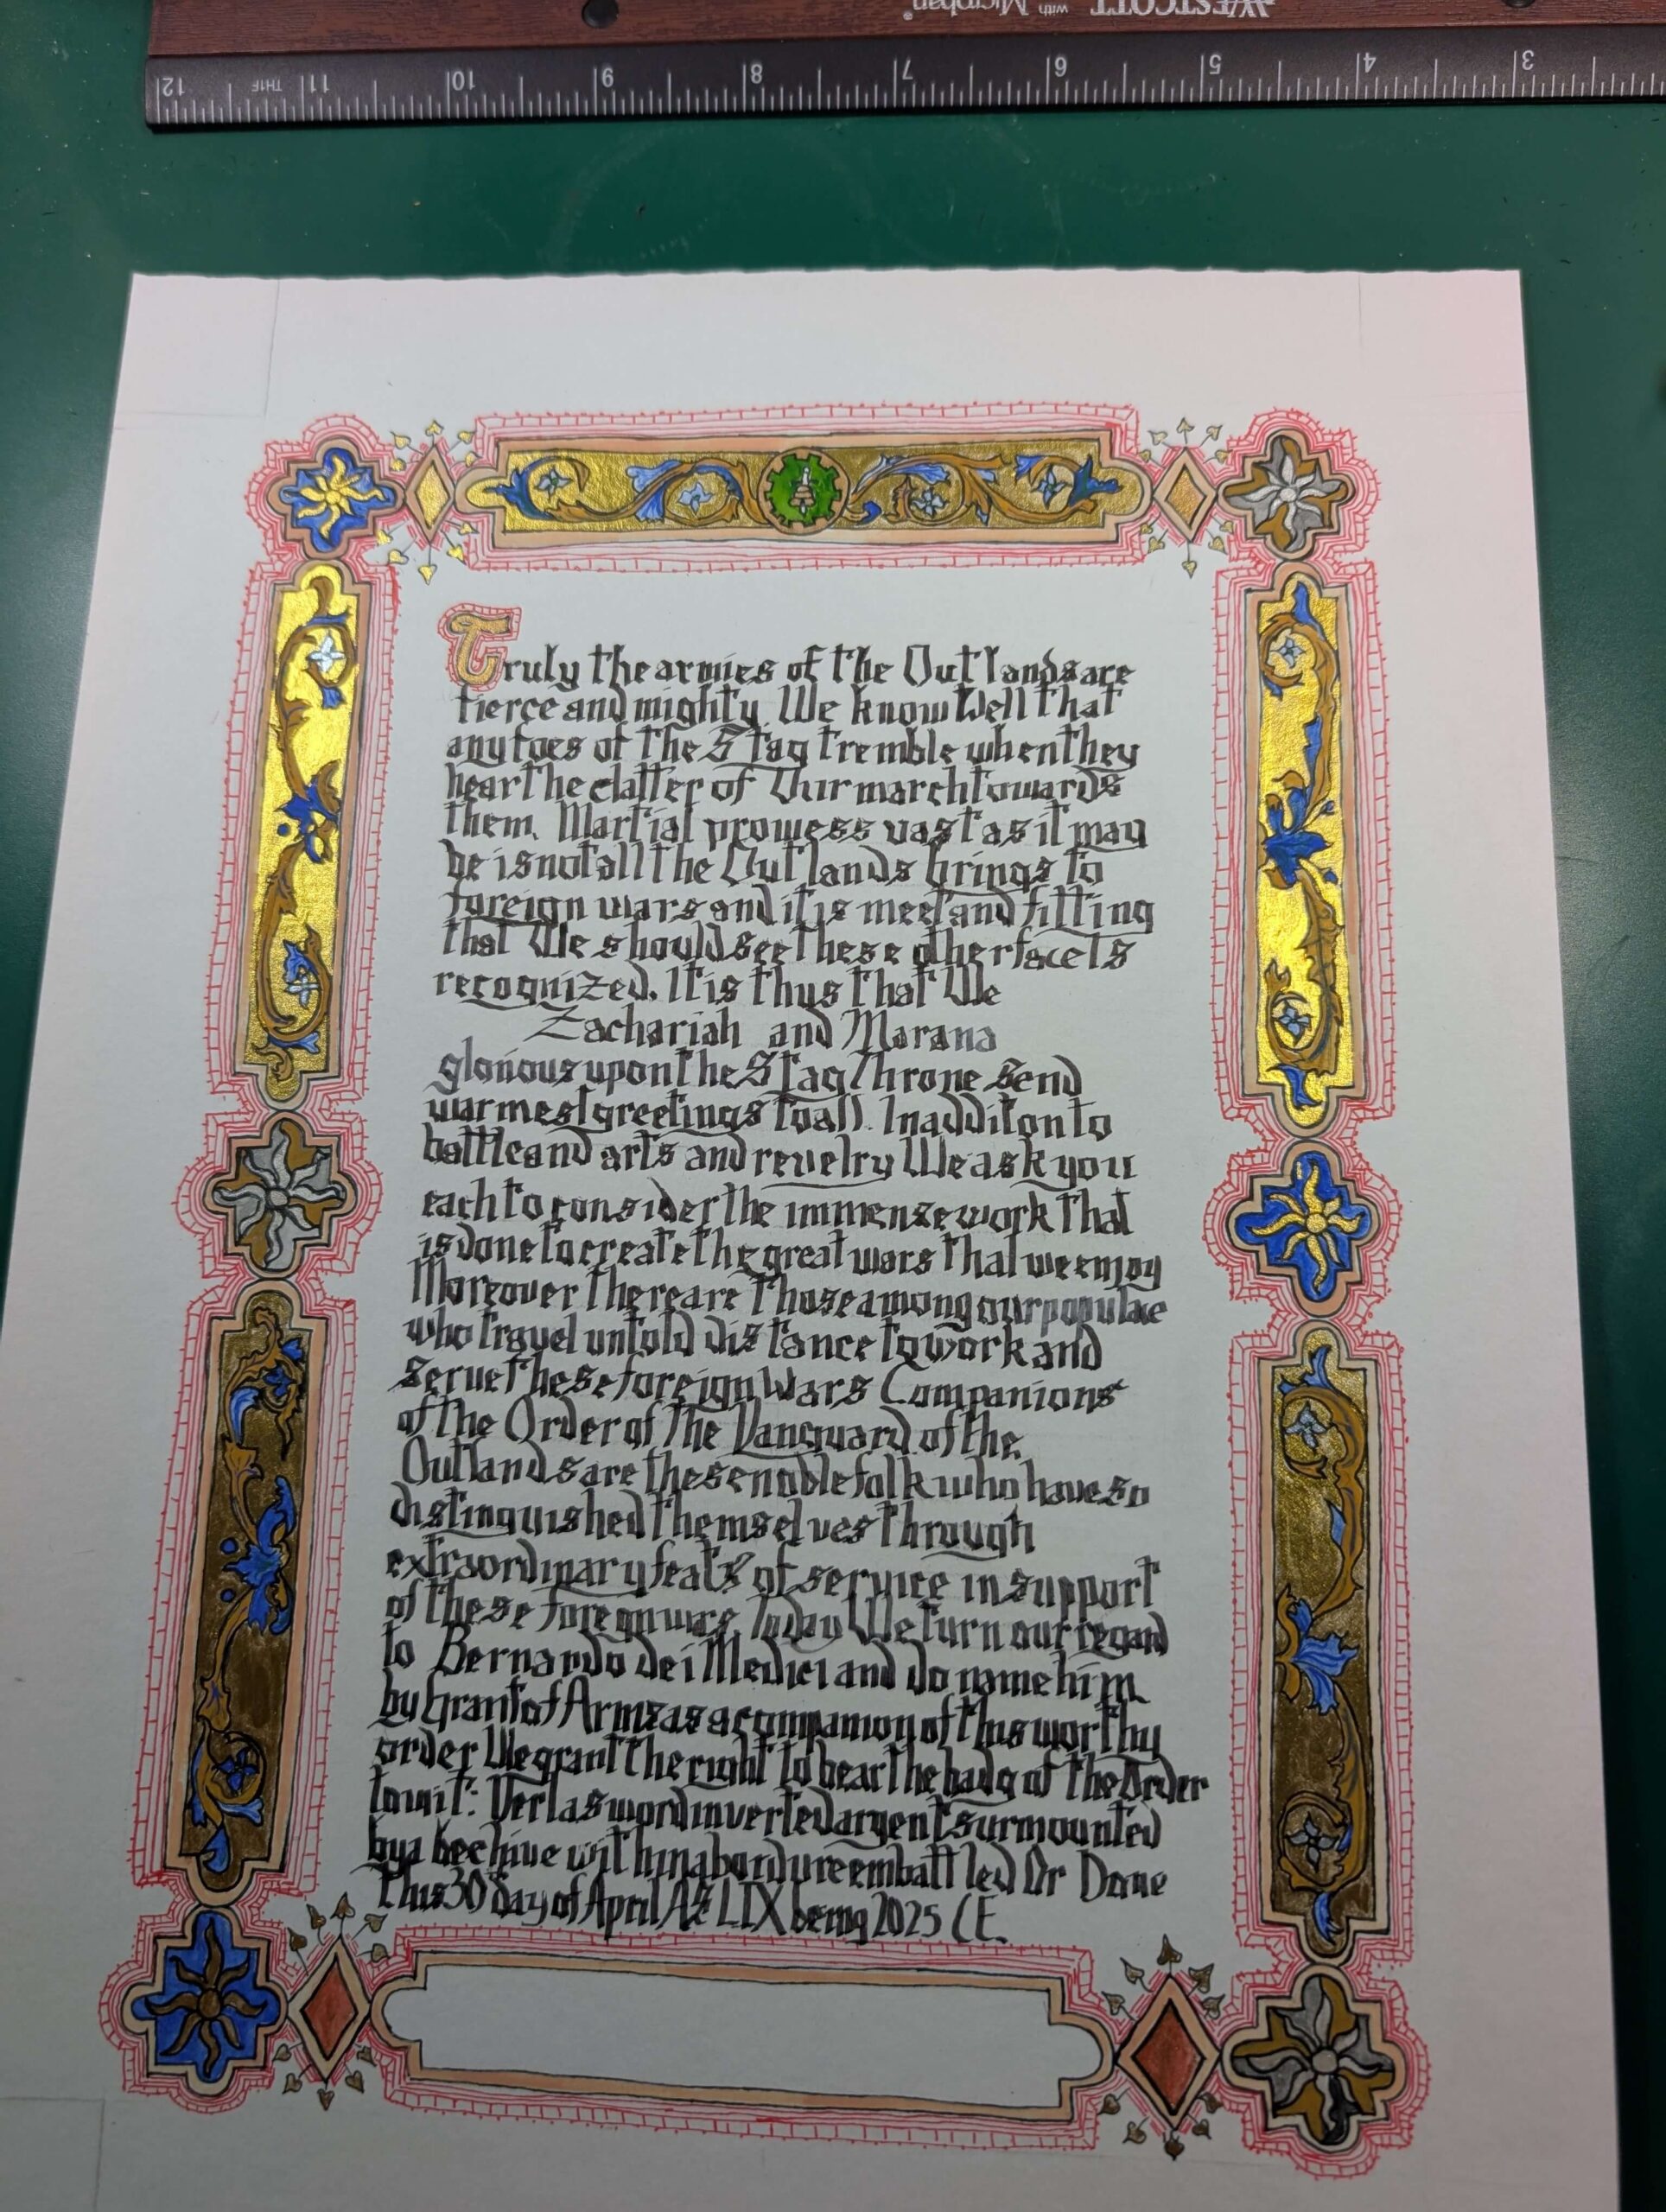 WESTCOTT with Microban®
12 11 10 9 8 7 6 5 4 3
Truly the armies of the Outlands are
fierce and mighty. We know Well that
any foes of the Stag tremble when they
hear the clatter of Our march towards
them. Martial prowess vast as it may
be is not all the Outlands brings to
foreign wars and it is meet and fitting
that We should see these other facets
recognized. It is thus that We
Zachariah and Marana
glorious upon the Stag Throne Send
warmest greetings to all. In additon to
battle and arts and revelry We ask you
each to consider the immense work that
is done to create the great wars that we enjoy
Moreover there are those among our populace
who travel untold distance to work and
serve these foreign Wars Companions
of the Order of the Vanguard of the
Outlands are these noble folk who have so
distinguished themselves through
extraordinary feats of service in support
of these foreign wars. Today We turn our regard
to Bernardo dei Medici and do name him
by Grant of Arms as a companion of this worthy
order We grant the right to bear the badg of the Order
towit: Vert a sword inverted argent surmounted
by a beehive within a bordure embattled Or Done
This 30 day of April AS LIX being 2025 CE.